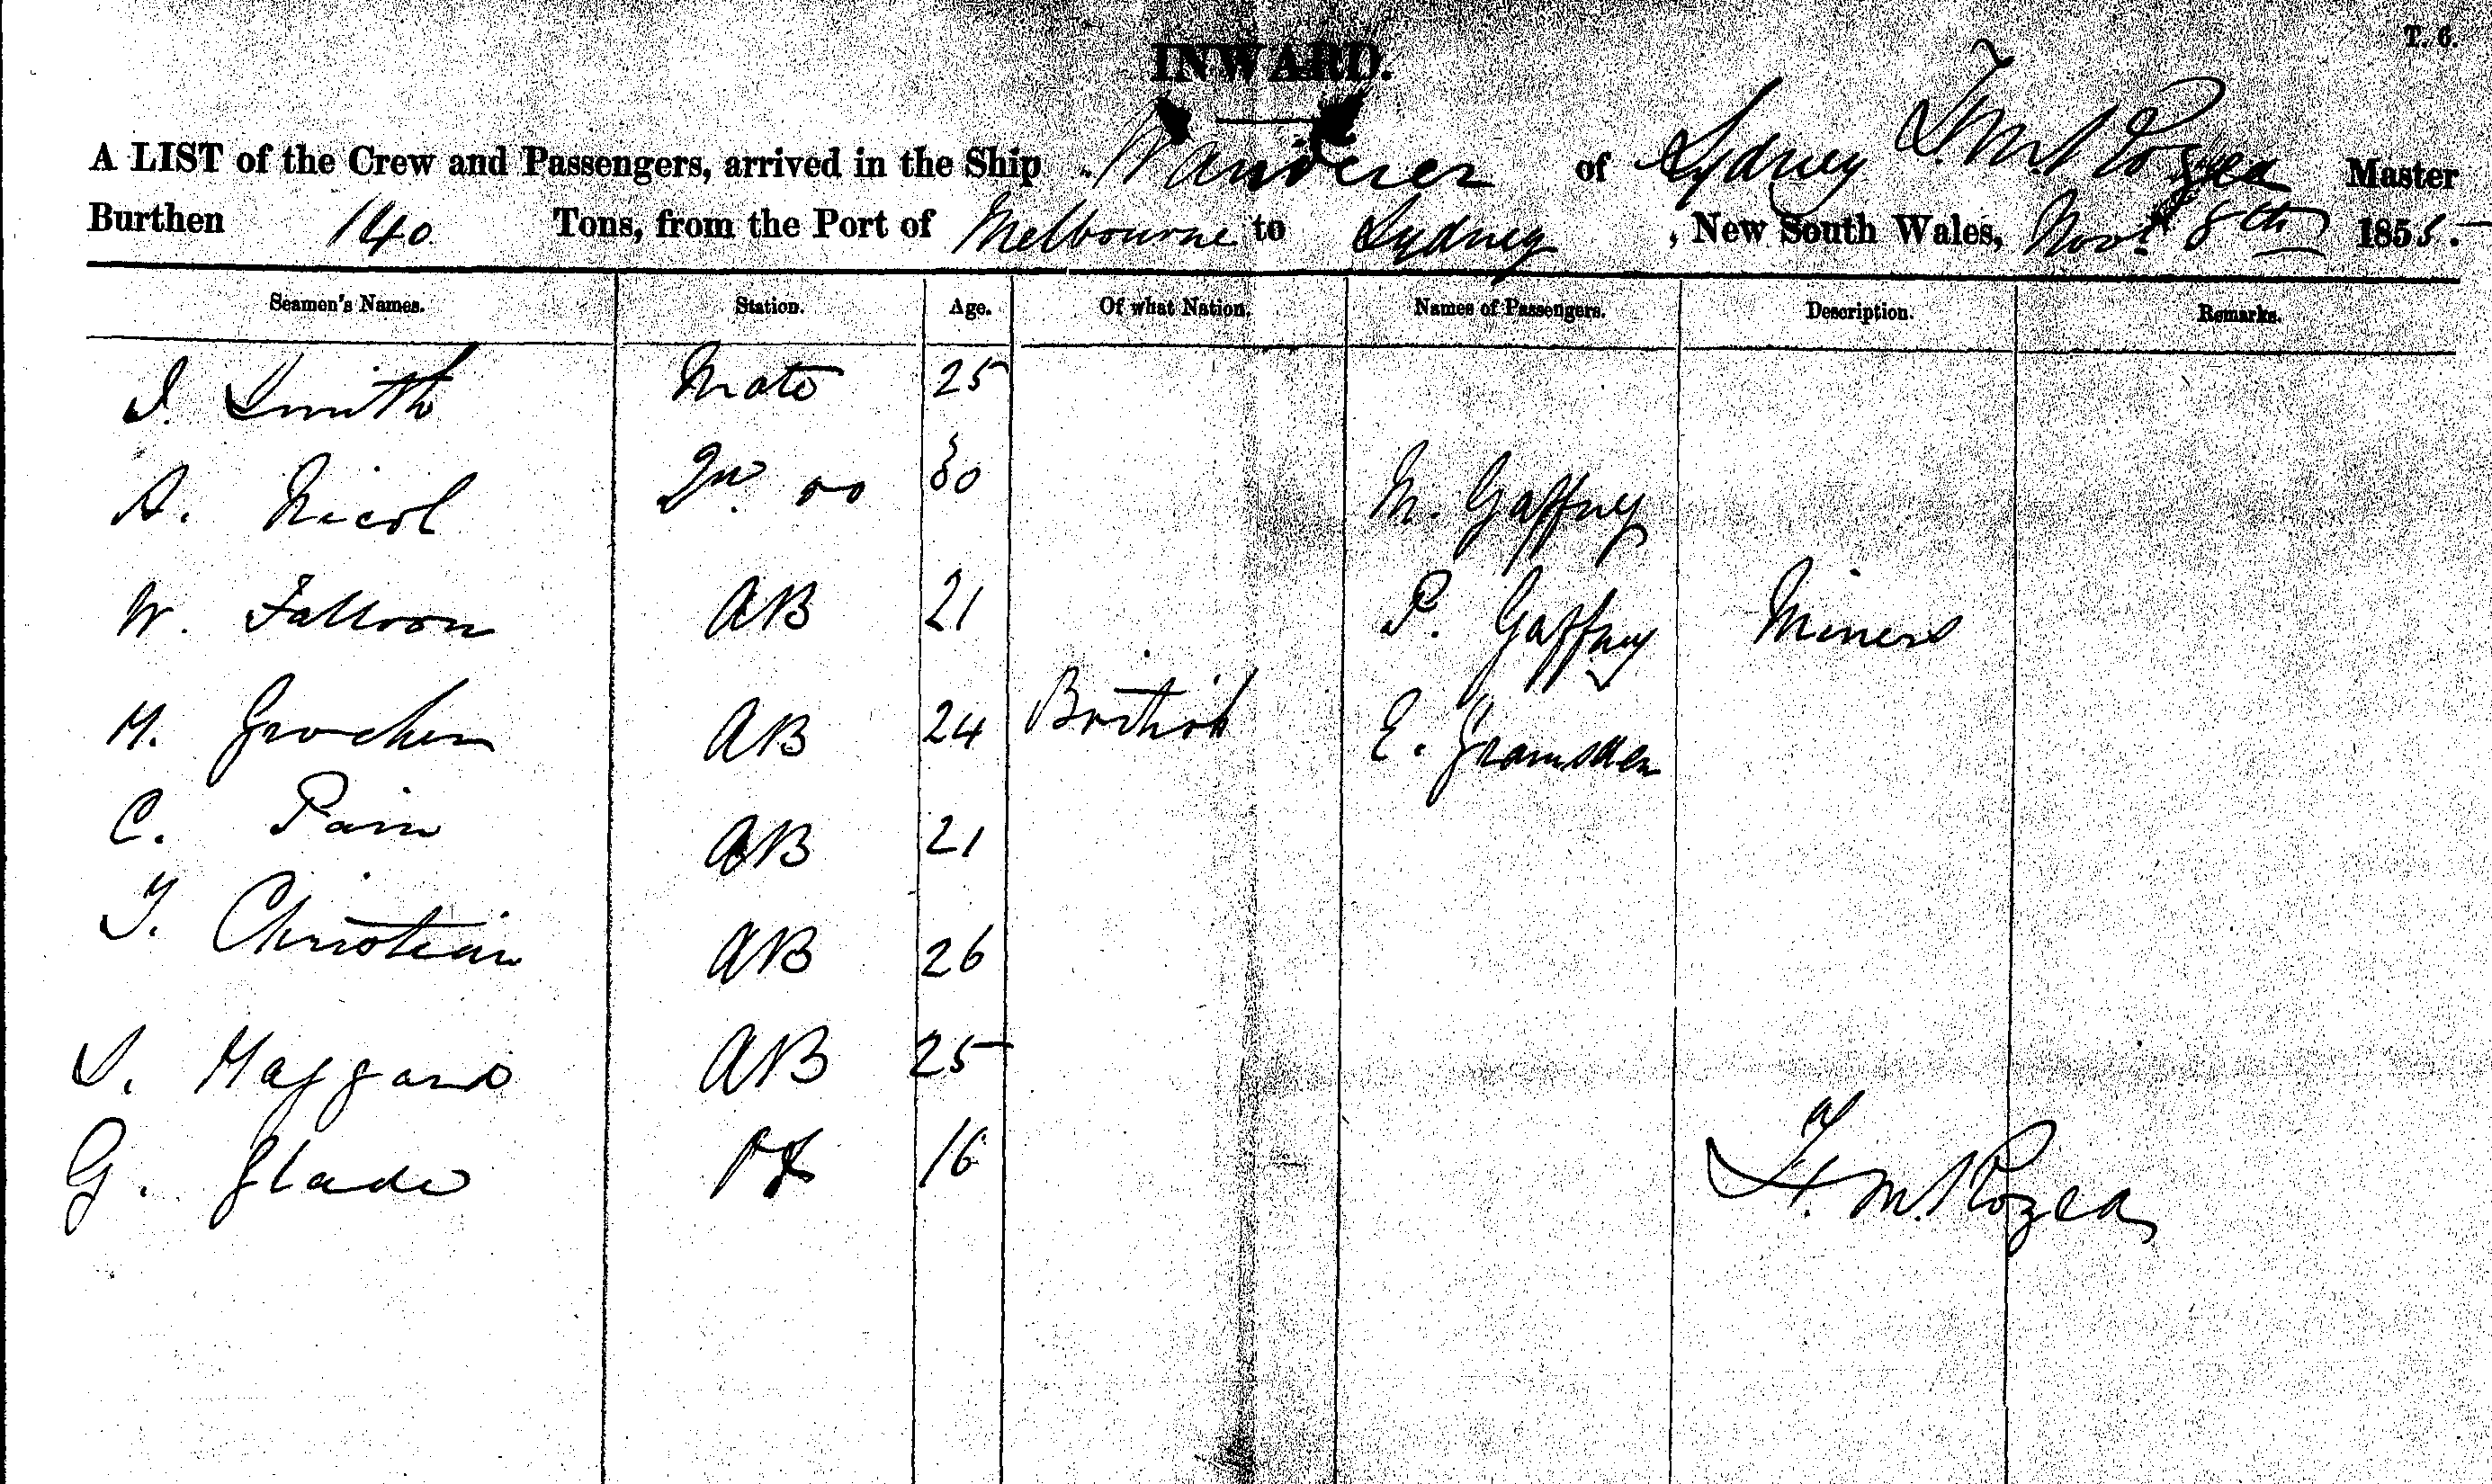 T. 6.
INWARD.
A LIST of the Crew and Passengers, arrived in the Ship Wanderer of Sydney F. M. Rozea Master
Burthen 140 Tons, from the Port of Melbourne to Sydney, New South Wales, Novr 8th 1855.
Seamen's Names. Station. Age. Of what Nation. Names of Passengers. Description. Remarks.
Smith Mate 25
A. Nicol 2nd do 30 M. Gaffney
W. Falloon AB 21 P. Gaffney Miners
AB 24 British E.
C. Pain AB 21
Christian AB 26
AB 25
G. Slade 16
F. M. Rozea